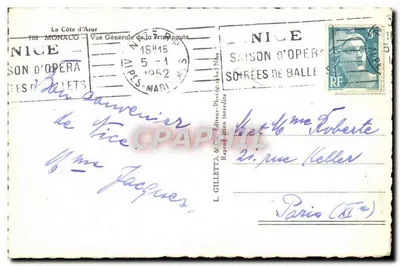 La Côte d'Azur
709 MONACO - Vue Générale de la Principauté
NICE
SAISON D'OPERA
SOIREES DE BALLETS
NICE R.P.
18H45
5 -1
1952
ALPES-MARIMES
NICE
SAISON D'OPERA
SOIREES DE BALLE
8F
RF
Bon souvenir
de Nice.
Mme Jacques
L. GILLETTA & Cie, Editeur-Photographe, Nice
Reproduction interdite
CPAPHIL.COM
M et Mme Roberte
21. rue Keller
Paris (XIe)